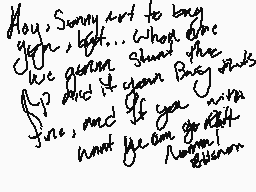 Hey, Sorry not to bug
you, but... when are
we gonna start the
RP and if your Busy thats
fine, and if you
want we can go with
Normal